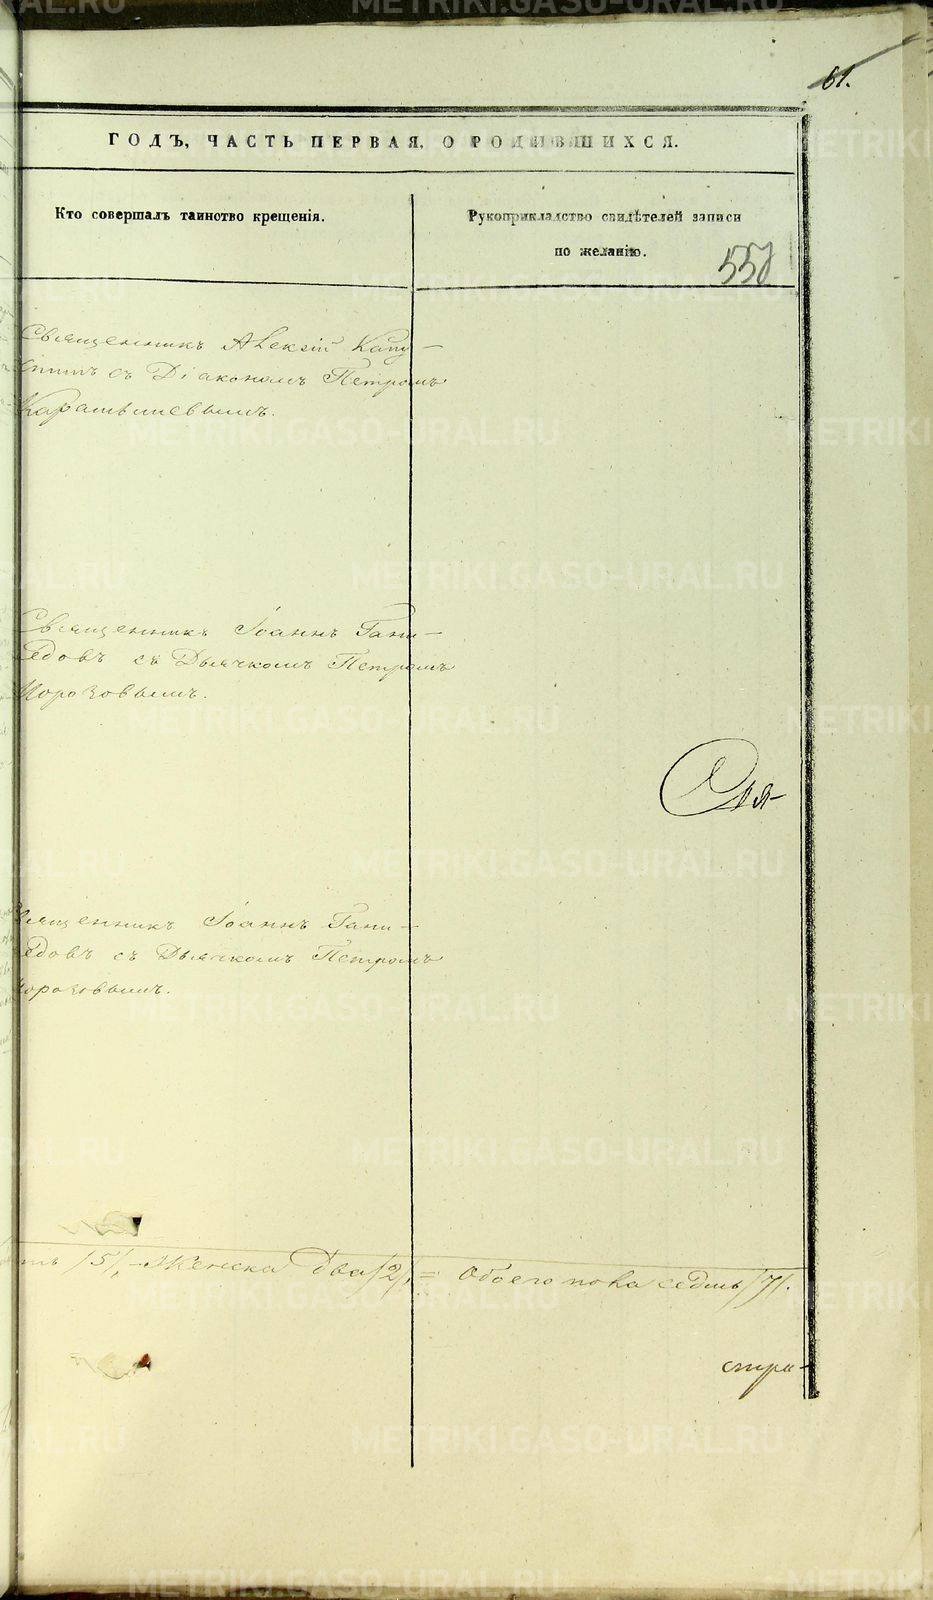 61.
ГОДЪ, ЧАСТЬ ПЕРВАЯ, О РОДИВШИХСЯ.
Кто совершалъ таинство крещенія.
Рукоприкладство свидѣтелей записи
по желанію.
558
Священникъ Алексій Капу-
стинъ съ Діакономъ Петромъ
Карамышевымъ.
Священникъ Іоаннъ Гани-
едовъ съ Дьячкомъ Петромъ
Морозовымъ.
вященникъ Іоаннъ Гани-
едовъ съ Дьячкомъ Петромъ
орозовымъ.
ть /5/, Женска два /2/, = Обоего пола седмь /7/.
METRIKI.GASO-URAL.RU